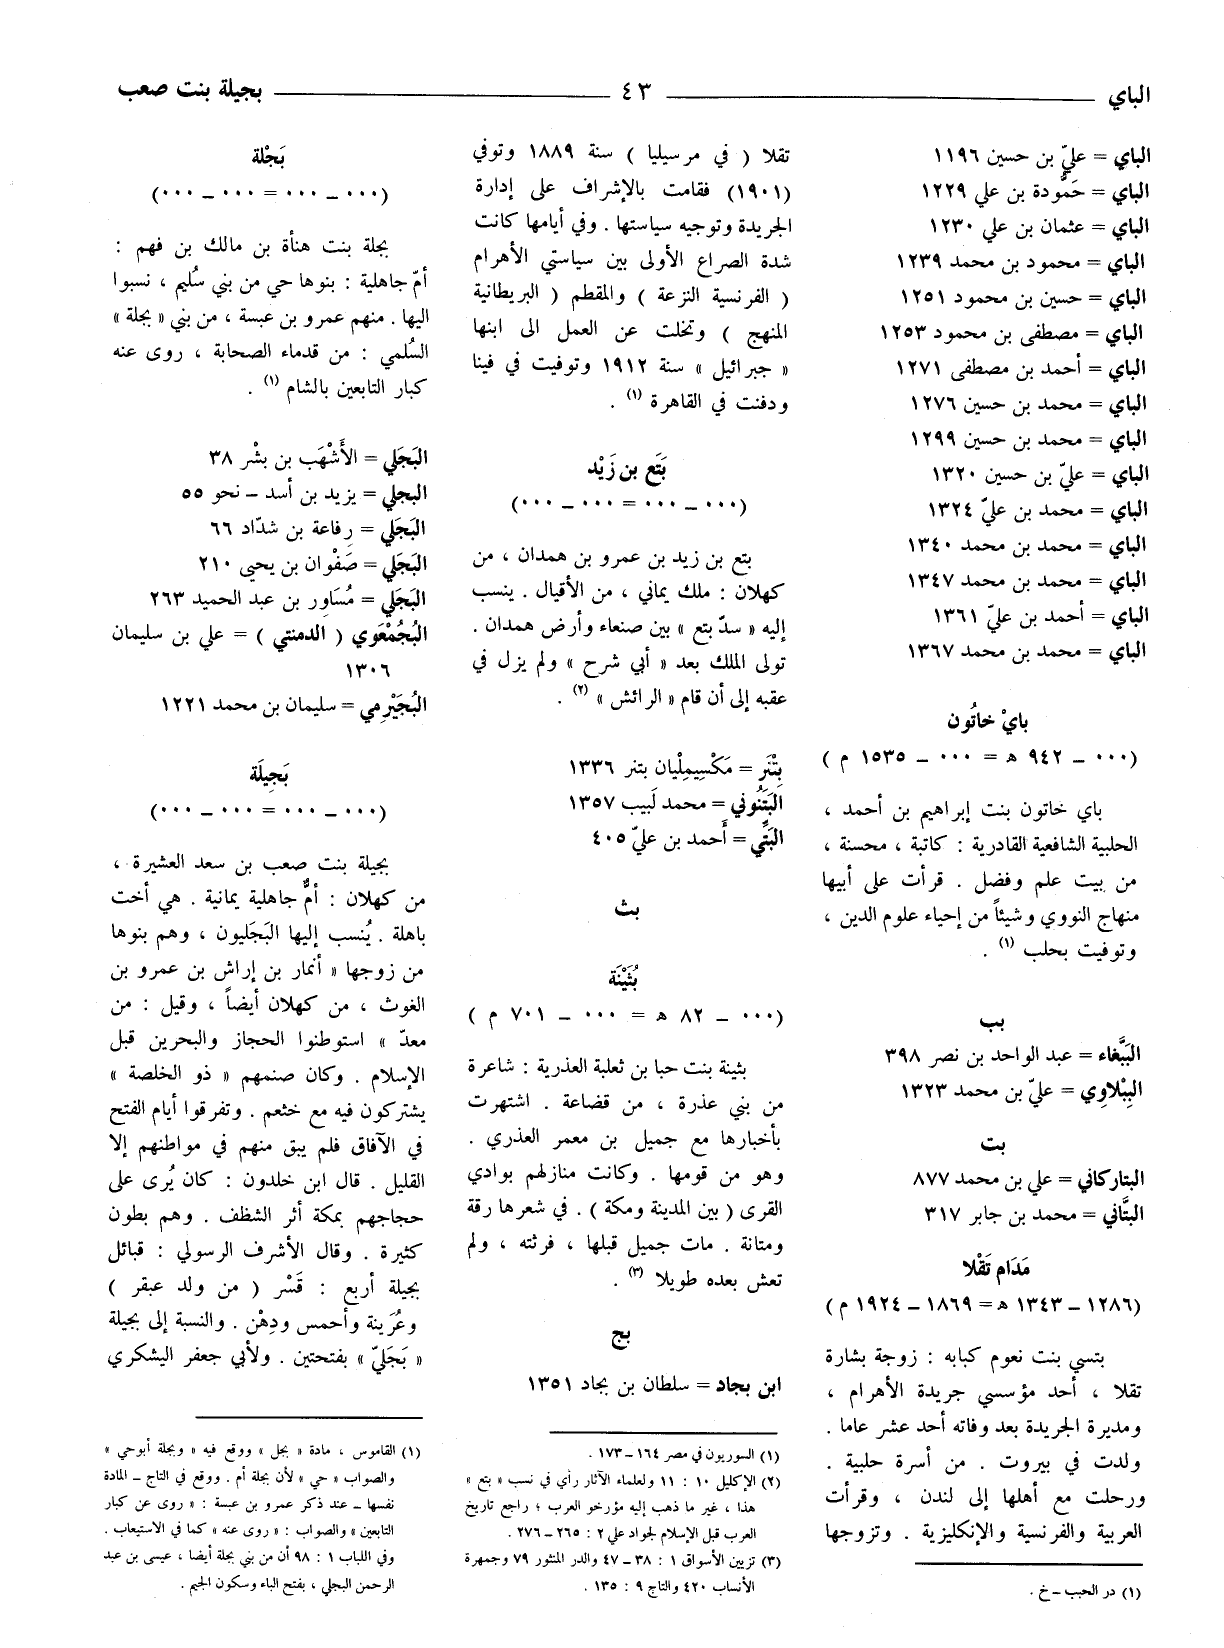 الباي ٤٣ بجيلة بنت صعب
الباي = عليّ بن حسين ١١٩٦
الباي = حَمُّودة بن علي ١٢٢٩
الباي = عثمان بن علي ١٢٣٠
الباي = محمود بن محمد ١٢٣٩
الباي = حسين بن محمود ١٢٥١
الباي = مصطفى بن محمود ١٢٥٣
الباي = أحمد بن مصطفى ١٢٧١
الباي = محمد بن حسين ١٢٧٦
الباي = محمد بن حسين ١٢٩٩
الباي = عليّ بن حسين ١٣٢٠
الباي = محمد بن عليّ ١٣٢٤
الباي = محمد بن محمد ١٣٤٠
الباي = محمد بن محمد ١٣٤٧
الباي = أحمد بن عليّ ١٣٦١
الباي = محمد بن محمد ١٣٦٧
بايْ خاتُون
(٠٠٠ ــ ٩٤٢ ه = ٠٠٠ ــ ١٥٣٥ م )
باي خاتون بنت إبراهيم بن أحمد ،
الحلبية الشافعية القادرية : كاتبة ، محسنة ،
من بيت علم وفضل . قرأت على أبيها
منهاج النووي وشيئاً من إحياء علوم الدين ،
وتوفيت بحلب (١) .
بب
البَّبغاء = عبد الواحد بن نصر ٣٩٨
البِبْلاوِي = عليّ بن محمد ١٣٢٣
بت
البتاركاني = علي بن محمد ٨٧٧
البتَّاني = محمد بن جابر ٣١٧
مَدَام تَقْلا
(١٢٨٦ ــ ١٣٤٣ ه = ١٨٦٩ ــ ١٩٢٤ م )
بتسي بنت نعوم كبابه : زوجة بشارة
تقلا ، أحد مؤسسي جريدة الأهرام ،
ومديرة الجريدة بعد وفاته أحد عشر عاما .
ولدت في بيروت . من أسرة حلبية .
ورحلت مع أهلها إلى لندن ، وقرأت
العربية والفرنسية والإنكليزية . وتزوجها
(١) در الحبب ــ خ .
تقلا ( في مرسيليا ) سنة ١٨٨٩ وتوفي
(١٩٠١) فقامت بالإشراف على إدارة
الجريدة وتوجيه سياستها . وفي أيامها كانت
شدة الصراع الأولى بين سياستي الأهرام
( الفرنسية النزعة ) والمقطم ( البريطانية
المنهج ) وتخلت عن العمل الى ابنها
« جبرائيل » سنة ١٩١٢ وتوفيت في فينا
ودفنت في القاهرة (١) .
بَتَع بن زَيْد
(٠٠٠ ــ ٠٠٠ = ٠٠٠ ــ ٠٠٠)
بتع بن زيد بن عمرو بن همدان ، من
كهلان : ملك يماني ، من الأقيال . ينسب
إليه « سدّ بتع » بين صنعاء وأرض همدان .
تولى الملك بعد « أبي شرح » ولم يزل في
عقبه إلى أن قام « الرائش » (٢) .
بِتْنَر = مَكْسِيمِلْيان بتنر ١٣٣٦
البَتَنُوني = محمد لَبيب ١٣٥٧
البَتِّي = أَحمد بن عليّ ٤٠٥
بث
بُثَيْنَة
(٠٠٠ ــ ٨٢ ه = ٠٠٠ ــ ٧٠١ م )
بثينة بنت حبا بن ثعلبة العذرية : شاعرة
من بني عذرة ، من قضاعة . اشتهرت
بأخبارها مع جميل بن معمر العذري .
وهو من قومها . وكانت منازلهم بوادي
القرى ( بين المدينة ومكة ) . في شعرها رقة
ومتانة . مات جميل قبلها ، فرثته ، ولم
تعش بعده طويلا (٣) .
بج
ابن بجاد = سلطان بن بجاد ١٣٥١
(١) السوريون في مصر ١٦٤ ــ ١٧٣ .
(٢) الإكليل ١٠ : ١١ ولعلماء الآثار رأي في نسب « بتع »
هذا ، غير ما ذهب إليه مؤرخو العرب ؛ راجع تاريخ
العرب قبل الإسلام لجواد علي ٢ : ٢٦٥ ــ ٢٧٦ .
(٣) تزيين الأسواق ١ : ٣٨ ــ ٤٧ والدر المنثور ٧٩ وجمهرة
الأنساب ٤٢٠ والتاج ٩ : ١٣٥ .
بَجْلة
(٠٠٠ ــ ٠٠٠ = ٠٠٠ ــ ٠٠٠)
بجلة بنت هنأة بن مالك بن فهم :
أمّ جاهلية : بنوها حي من بني سُليم ، نسبوا
اليها . منهم عمرو بن عبسة ، من بني « بجلة »
السُلمي : من قدماء الصحابة ، روى عنه
كبار التابعين بالشام (١) .
البَجَلي = الأَشْهَب بن بشْر ٣٨
البجلي = يزيد بن أسد ــ نحو ٥٥
البَجَلي = رِفاعة بن شدّاد ٦٦
البَجَلي = صَفْوان بن يحيى ٢١٠
البَجَلي = مُسَاوِر بن عبد الحميد ٢٦٣
البُجُمْعَوي ( الدمنتي ) = علي بن سليمان
١٣٠٦
البُجَيْرِمي = سليمان بن محمد ١٢٢١
بَجِيلَة
(٠٠٠ ــ ٠٠٠ = ٠٠٠ ــ ٠٠٠)
بجيلة بنت صعب بن سعد العشيرة ،
من كهلان : أمٌّ جاهلية يمانية . هي أخت
باهلة . يُنسب إليها البَجَليون ، وهم بنوها
من زوجها « أنمار بن إراش بن عمرو بن
الغوث ، من كهلان أيضاً ، وقيل : من
معدّ » استوطنوا الحجاز والبحرين قبل
الإسلام . وكان صنمهم « ذو الخلصة »
يشتركون فيه مع خثعم . وتفرقوا أيام الفتح
في الآفاق فلم يبق منهم في مواطنهم إلا
القليل . قال ابن خلدون : كان يُرى على
حجاجهم بمكة أثر الشظف . وهم بطون
كثيرة . وقال الأشرف الرسولي : قبائل
بجيلة أربع : قَسْر ( من ولد عبقر )
وعُرَينة وأحمس ودِهْن . والنسبة إلى بجيلة
« بَجَليّ » بفتحتين . ولأبي جعفر اليشكري
(١) القاموس ، مادة « بجل » ووقع فيه « وبجلة أبوحي »
والصواب « حي » لأن بجلة أم . ووقع في التاج ــ المادة
نفسها ــ عند ذكر عمرو بن عبسة : « روى عن كبار
التابعين » والصواب : « روى عنه » كما في الاستيعاب .
وفي اللباب ١ : ٩٨ أن من بني بجلة أيضا ، عيسى بن عبد
الرحمن البجلي ، بفتح الباء وسكون الجيم .